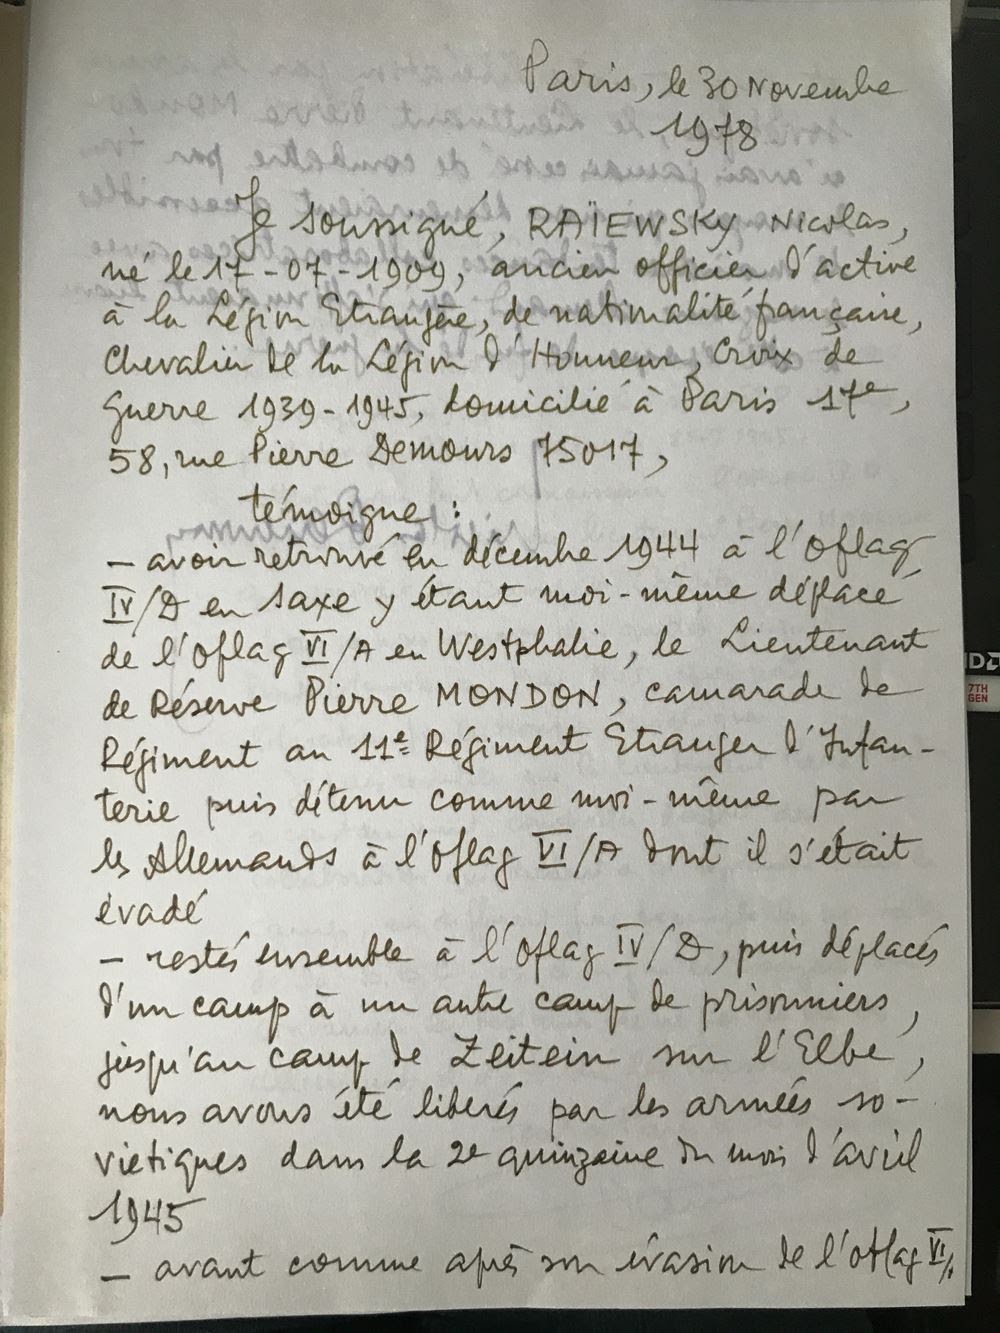 Paris, le 30 Novembre
1978
Je soussigné, RAÏEWSKY Nicolas,
né le 17-07-1909, ancien officier d'active
à la Légion Etrangère, de nationalité française,
Chevalier de la Légion d'Honneur, Croix de
Guerre 1939-1945, domicilié à Paris 17e,
58, rue Pierre Demours 75017,
témoigne :
— avoir retrouvé en décembre 1944 à l'Oflag
IV/D en Saxe y étant moi-même déplacé
de l'Oflag VI/A en Westphalie, le Lieutenant
de Réserve Pierre MONDON, camarade de
Régiment au 11e Régiment Etranger d'Infan-
terie puis détenu comme moi-même par
les Allemands à l'Oflag VI/A dont il s'était
évadé
— restés ensemble à l'Oflag IV/D, puis déplacés
d'un camp à un autre camp de prisonniers,
jusqu'au camp de Zeitein sur l'Elbe,
nous avons été libérés par les armées so-
viétiques dans la 2e quinzaine du mois d'avril
1945
— avant comme après son évasion de l'Oflag VI/
7TH
GEN